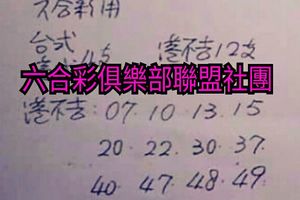 六合彩用
台式
港不吉12支
六合彩俱樂部聯盟社團
港不吉:07.10.13.15
20.22.30.37.
40.47.48.49